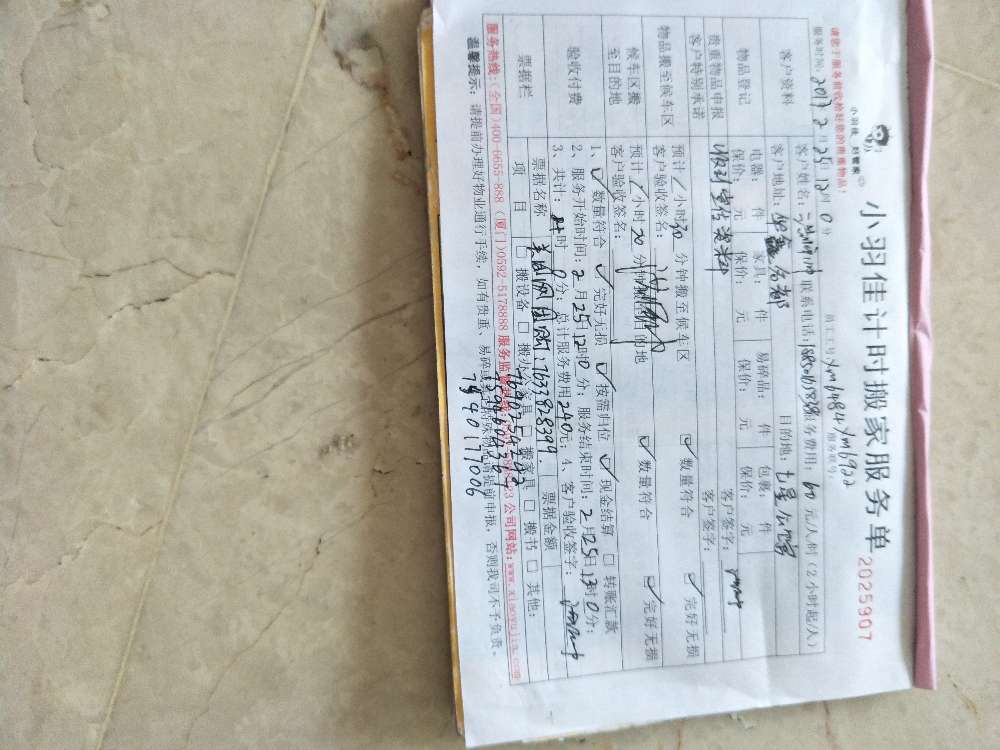 小羽佳计时搬家服务单
2025907
小羽佳 好管家
请您于服务前收拾好您的贵重物品!
员工工号: Xm6484 Xm6922
服务时间: 2017.2.25.12时0分
客户资料
客户姓名: 联系电话: 服务费用: 60元/人/时(2小时起/人)
客户地址: 目的地: 七星
物品登记
电器: 件 家具: 件 易碎品: 件 包裹: 件
保价: 元 保价: 元 保价: 元 保价: 元
贵重物品申报
客户签字:
客户特别承诺
收到 客户签字:
物品搬至候车区
预计/小时30分钟搬至候车区 ✓数量符合 ✓完好无损
客户验收签名:
候车区搬至目的地
预计/小时30分钟搬至目的地 ✓数量符合 ✓完好无损
客户验收签名:
验收付费
1、✓数量符合 ✓完好无损 ✓按需归位 ✓现金结算 □转账汇款
2、服务开始时间: 2月25日12时0分; 服务结束时间: 2月25日13时0分;
3、共计: 时0分; 总计服务费用240元; 4、客户验收签字:
票据栏
票据名称 美团网团购: 7633828399 票据金额
项目 □搬设备 □搬办公家具 □搬家具 □搬书 □其他:
服务热线:(全国)400-6655-888 (厦门)0592-5178888 服务监督热线: 公司网站:www.xiaoyujia.com
温馨提示: 请提前办理好物业通行手续, 如有贵重、易碎或 请提前申报, 否则我司不予负责。